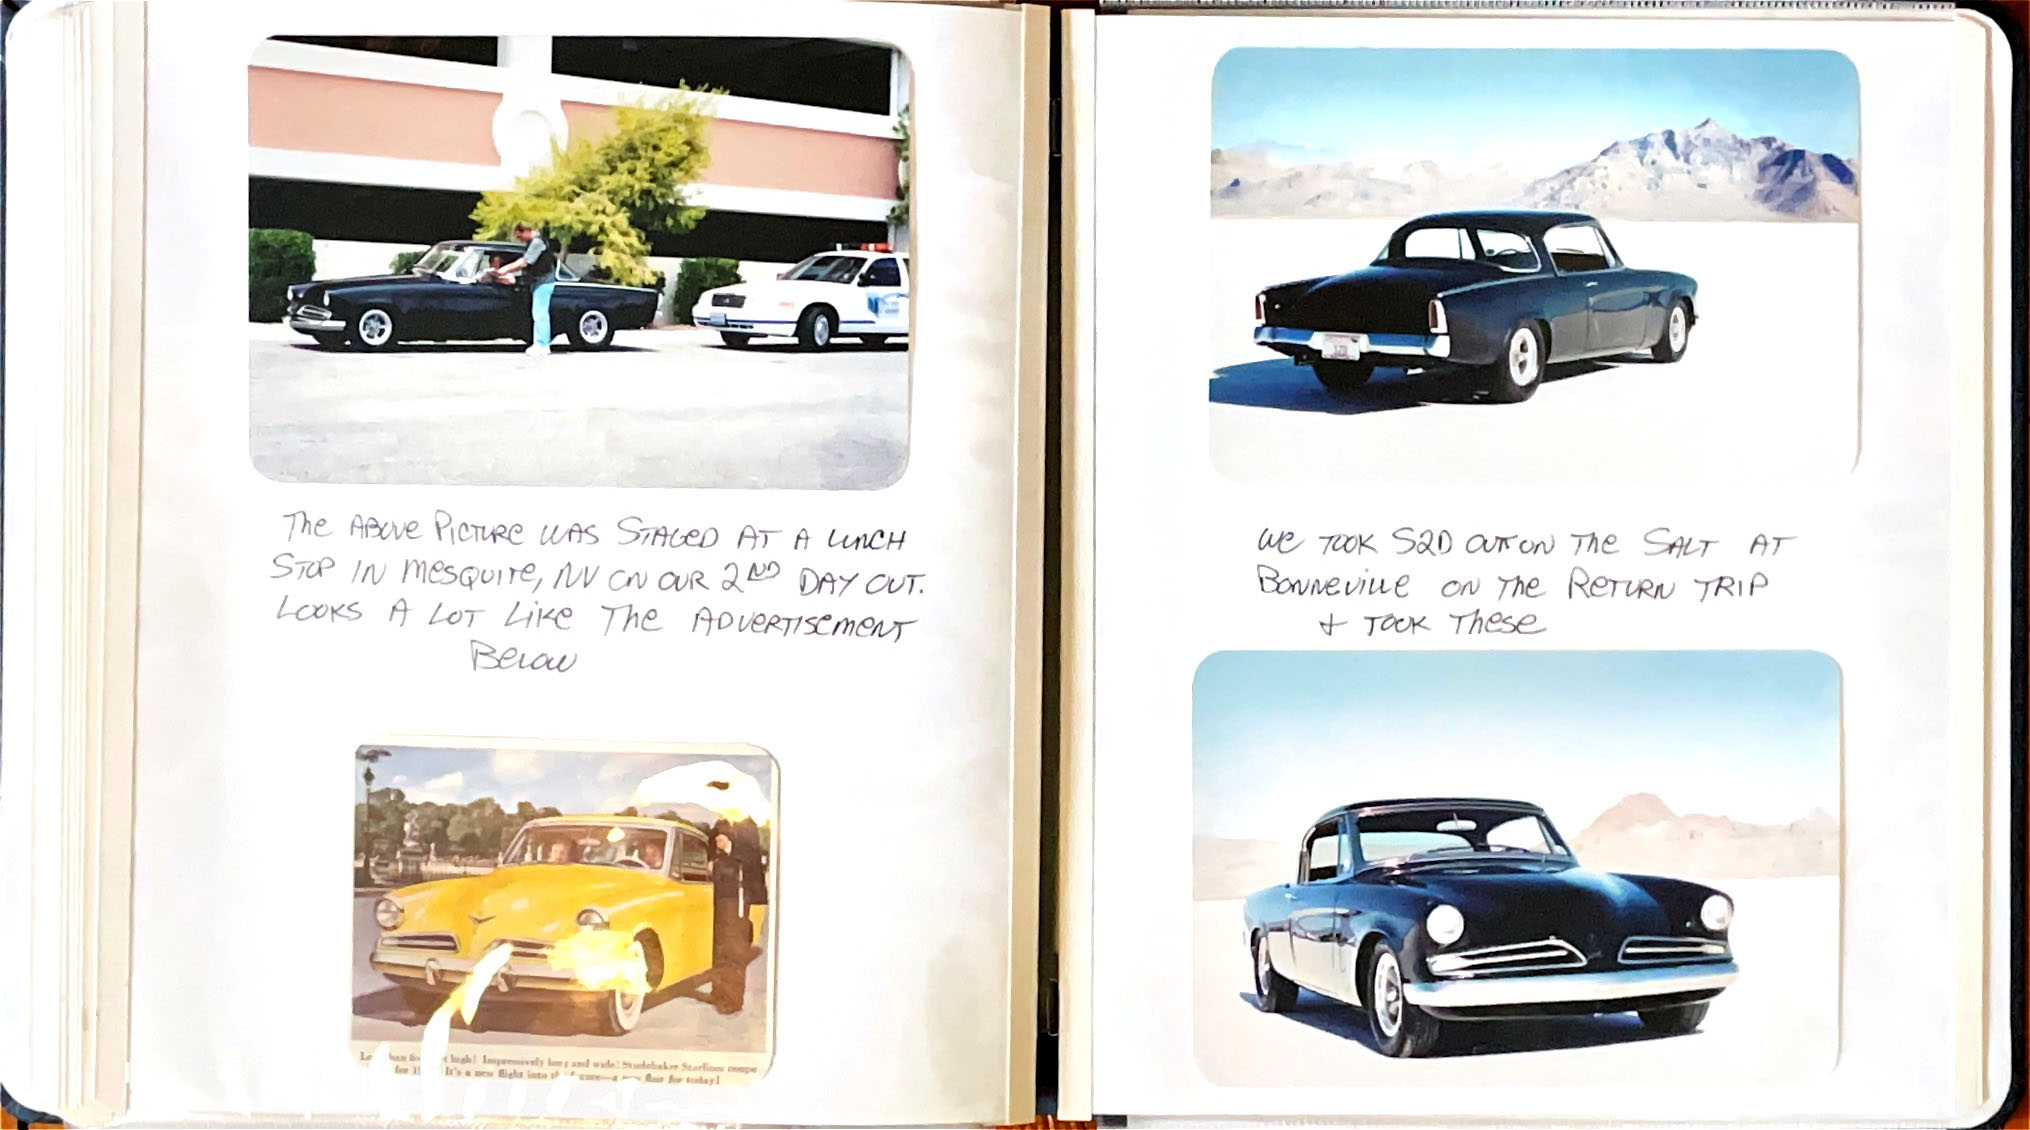 The Above Picture was Staged at a lunch
Stop in Mesquite, NV on our 2nd day out.
Looks a lot like the advertisement
Below
high! Impressively long and wide! Studebaker Starliner coupe
for It's a new flight into flair for today!
We took S2D out on the Salt at
Bonneville on the Return trip
+ took these